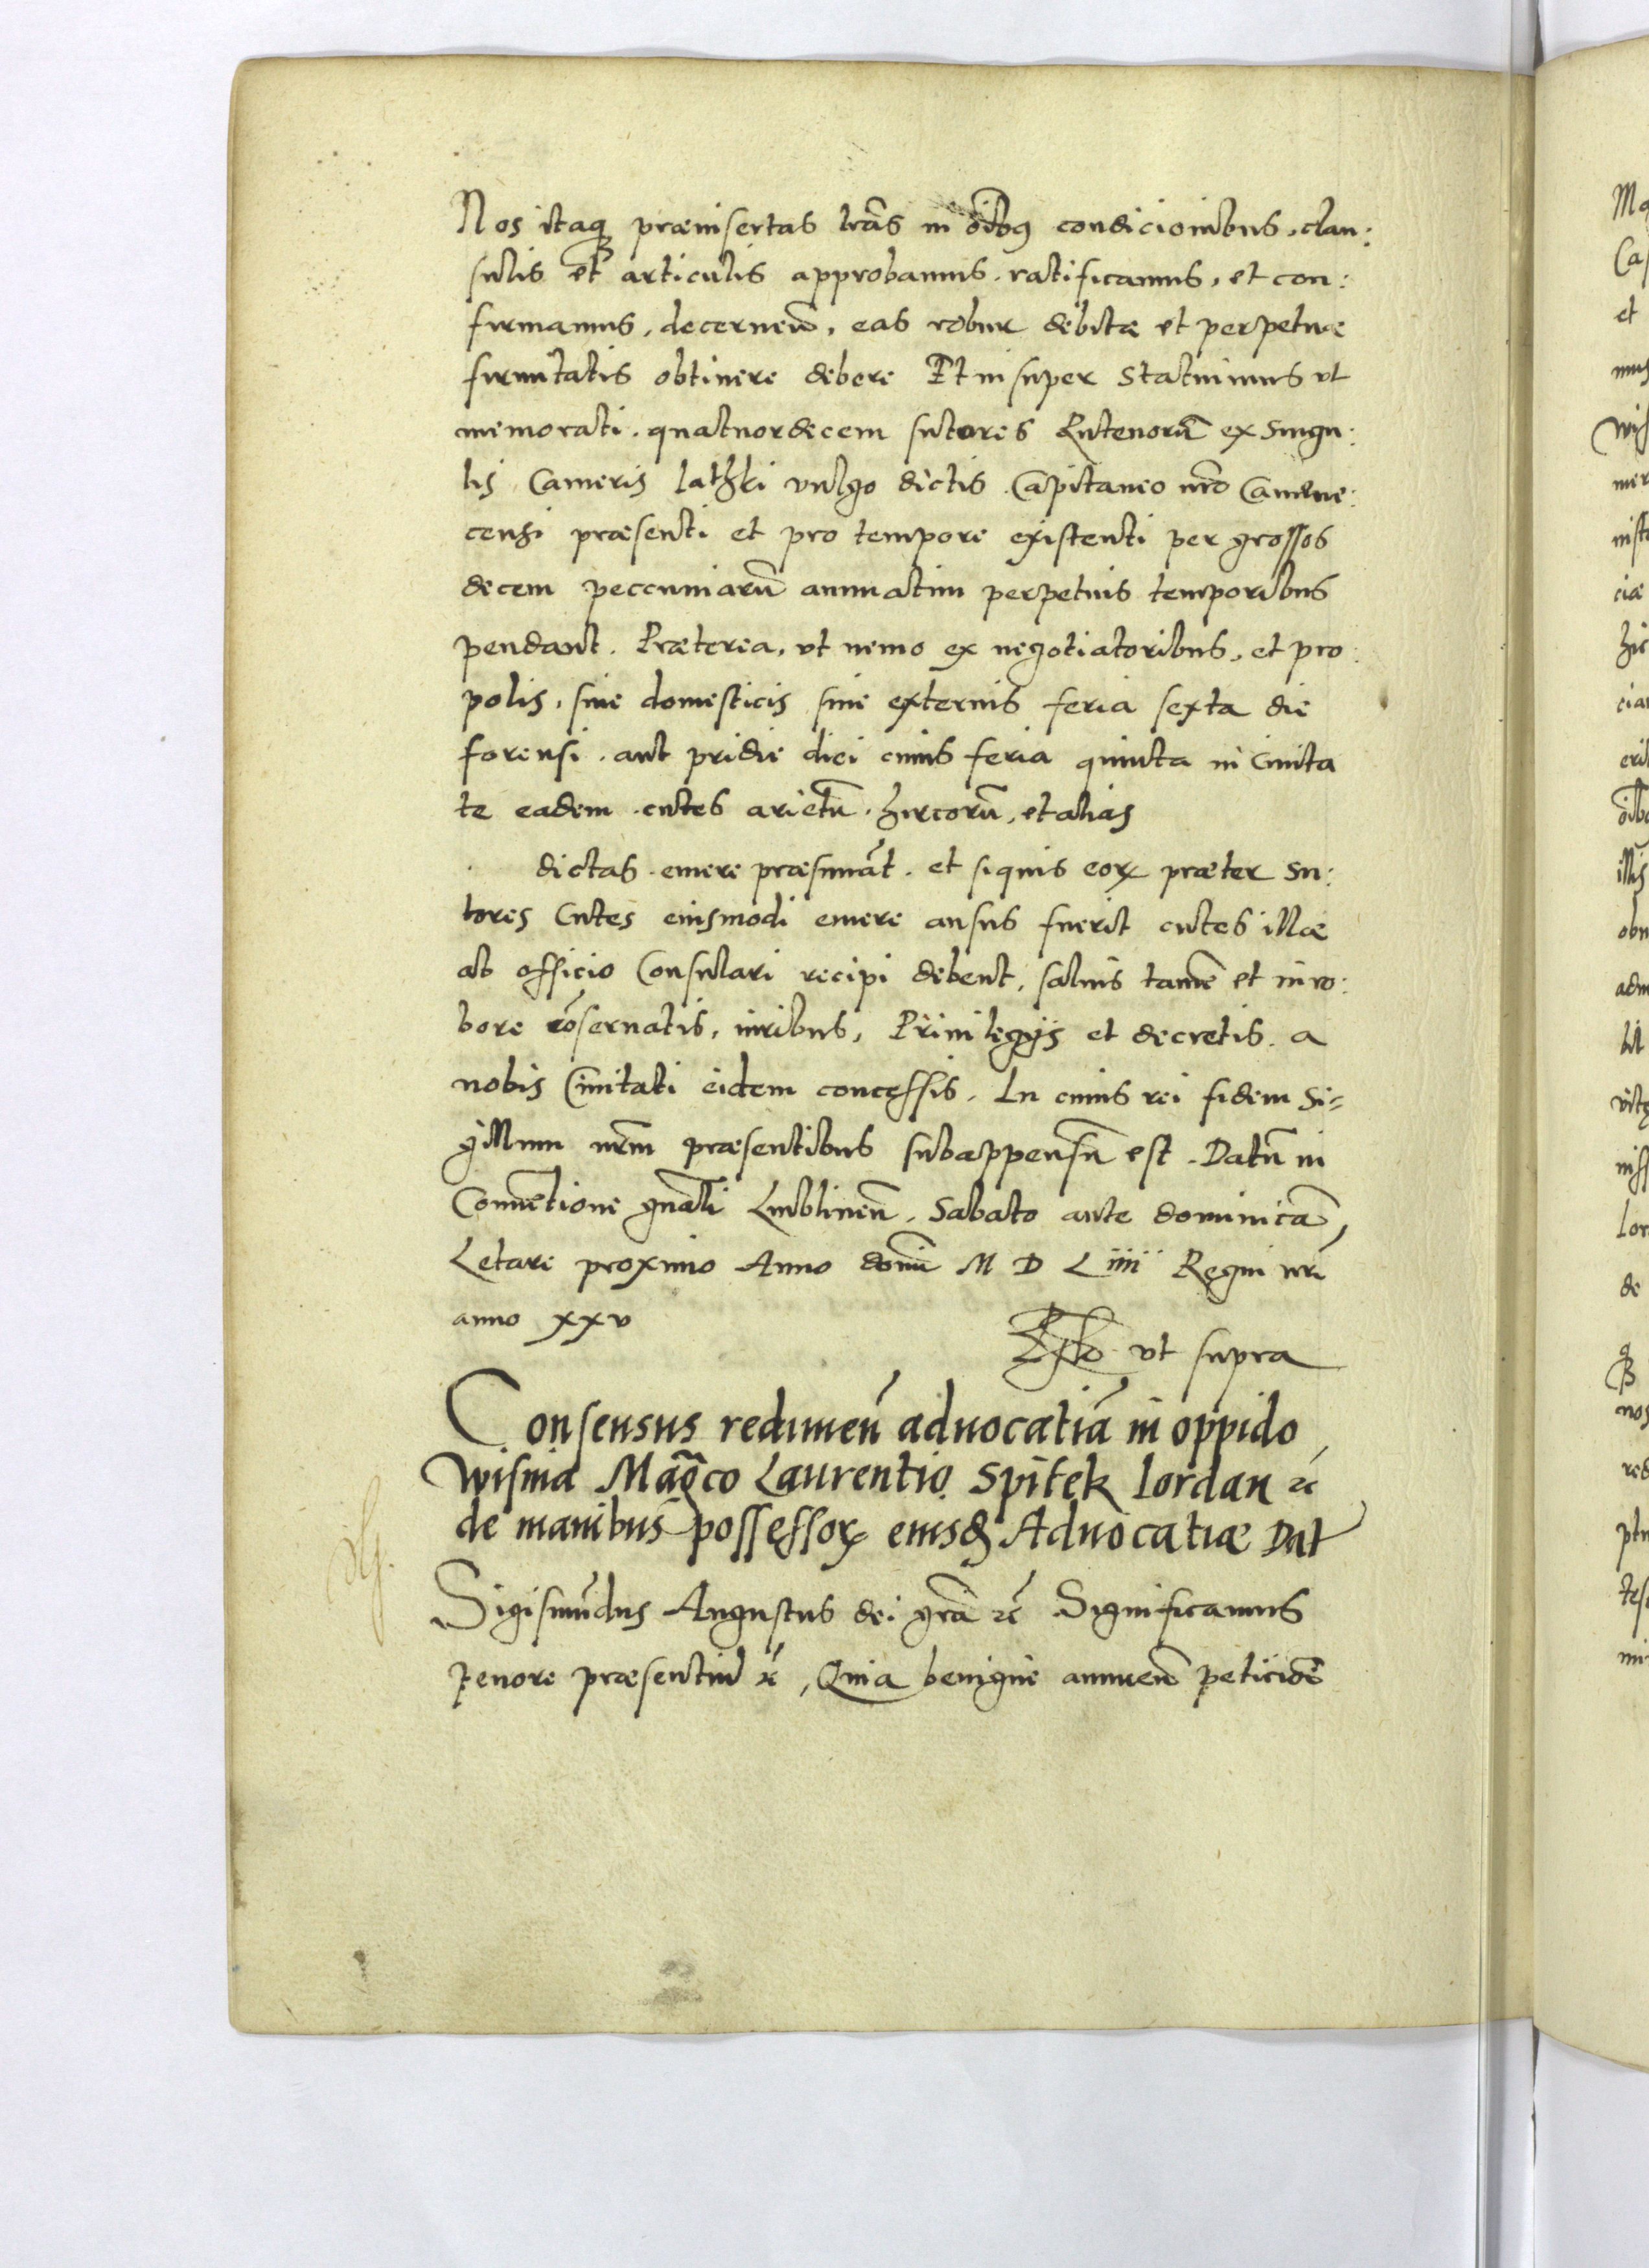 Nos itaq́ꝫ præinsertas lrãs in õibꝰ condicionibus, clau:
sulis et articulis approbamus. ratificamus, et con:
firmamus, decerneñ, eas robur debitæ et perpetuæ
firmitatis obtinere debere Et insuper statuimus vt
memorati. quatuordecem sutores Rutenorũ ex singu:
lis Cameris Iathki vulgo dictis Capitaneo nr̃o Camene:
censi præsenti et pro tempore existenti per grossos
decem peccuniarũ annuatim perpetuis temporibus
pendant. Præterea, vt nemo ex negotiatoribus, et pro:
polis, siue domesticis siue externis feria sexta die
forensi. aut pridie diei cuius feria quinta in Ciuita
te eadem cutes arietũ. hircorũ, et alias
dictas emere præsumãt. et siquis eorꝝ præter su:
tores Cutes eiusmodi emere ausus fuerit cutes illæ
ab officio Consulari recipi debent, saluis tamẽ et in ro:
bore cõseruatis, iuribus, Priuilegijs et decretis. a
nobis Ciuitati eidem concessis. In cuius rei fidem Si=
gillum nr̃m præsentibus subappensũ est. Datũ in
Conuẽtione gñali Lublineñ. Sabato ante dominicã
Letare proximo Anno domĩ M D L iiii Regni nr̃i
anno xxv
vt supra
Consensus redimeñ aduocatiã in oppido
Wisnia Magco Laurentio Spitek Iordan ꝛc
de manibus possessorꝝ eiusdẽ Aduocatiæ Dat
Sigismũdus Augustus dei gr̃a ꝛc Significamus
tenore præsentiũ ꝛc, Quia benigne annueñ peticiõẽ